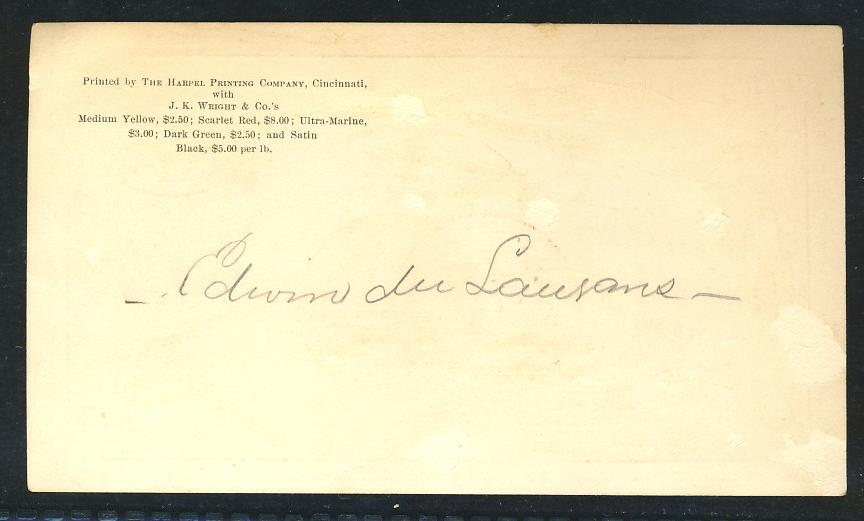 Printed by THE HARPEL PRINTING COMPANY, Cincinnati,
with
J. K. WRIGHT & Co.'s
Medium Yellow, $2.50; Scarlet Red, $8.00; Ultra-Marine,
$3.00; Dark Green, $2.50; and Satin
Black, $5.00 per lb.
— Edwin du Laurans —